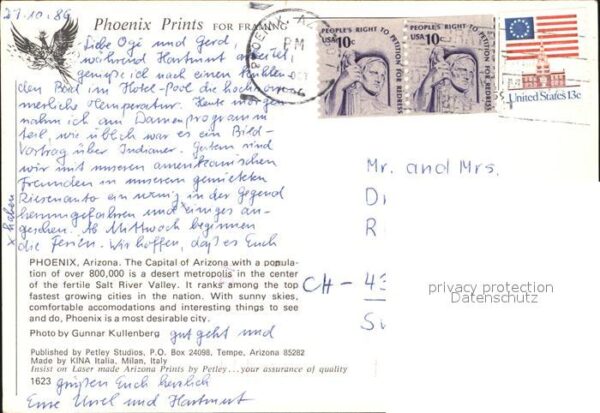 27.10.86
Phoenix Prints FOR FRAMING
Liebe Ogi und Gerd,
während Hartmut arbeitet,
genieße ich nach einem kühlen-
den Bad im Hotel-Pool die hochsom-
merliche Temperatur. Heute morgen
nahm ich am Damenprogramm
teil, wie üblich war es ein Bild-
Vortrag über Indianer. Gestern sind
wir mit unseren amerikanischen
Freunden in unserem gemieteten
Riesenauto ein wenig in der Gegend
herumgefahren und einiges an-
gesehen. Ab Mittwoch beginnen
die Ferien. Wir hoffen, daß es Euch
x haben
PHOENIX, Arizona. The Capital of Arizona with a popula-
tion of over 800,000 is a desert metropolis in the center
of the fertile Salt River Valley. It ranks among the top
fastest growing cities in the nation. With sunny skies,
comfortable accomodations and interesting things to see
and do, Phoenix is a most desirable city.
Photo by Gunnar Kullenberg
gut geht und
Published by Petley Studios, P.O. Box 24098, Tempe, Arizona 85282
Made by KINA Italia, Milan, Italy
Insist on Laser made Arizona Prints by Petley...your assurance of quality
1623
grüßen Euch herzlich
Eure Ursel und Hartmut
PHOENIX, AZ
PM
OCT
PEOPLE'S RIGHT TO PETITION FOR REDRESS
USA 10c
PEOPLE'S RIGHT TO PETITION FOR REDRESS
USA 10c
United States 13c
Mr. and Mrs.
D
R
CH - 43
S
privacy protection
Datenschutz